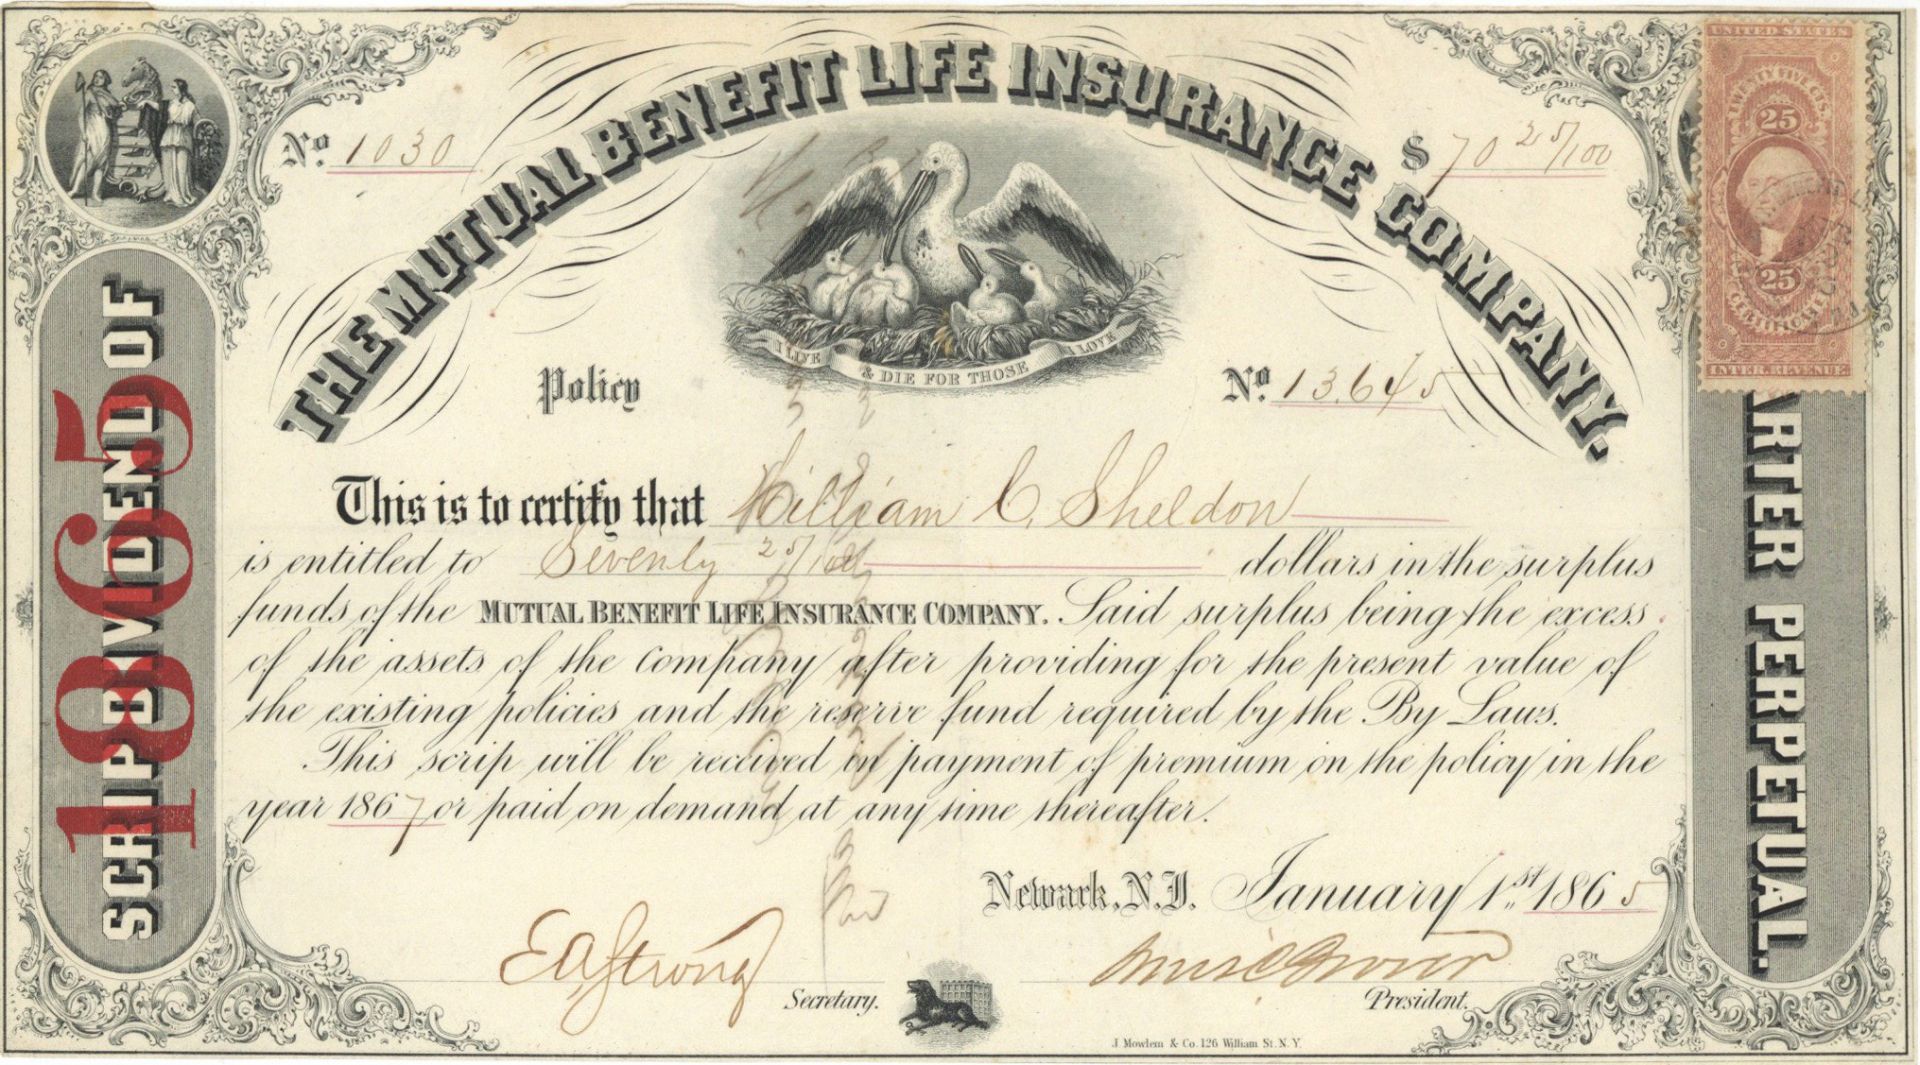 THE MUTUAL BENEFIT LIFE INSURANCE COMPANY.
No. 1030
$ 70 25/100
UNITED STATES
TWENTY FIVE CTS.
25
25
CERTIFICATE
INTER. REVENUE
I LIVE & DIE FOR THOSE I LOVE
Policy No. 13,645
SCRIP DIVIDEND OF
1865
ARTER PERPETUAL.
This is to certify that William C. Sheldon
is entitled to Seventy 25/100 dollars in the surplus
funds of the MUTUAL BENEFIT LIFE INSURANCE COMPANY. Said surplus being the excess
of the assets of the Company after providing for the present value of
the existing policies and the reserve fund required by the By Laws.
This scrip will be received in payment of premium on the policy in the
year 1867 or paid on demand at any time thereafter.
Newark, N.J. January 1st 1865
E A Strong
Secretary.
President.
J. Mowlem & Co. 126 William St. N.Y.